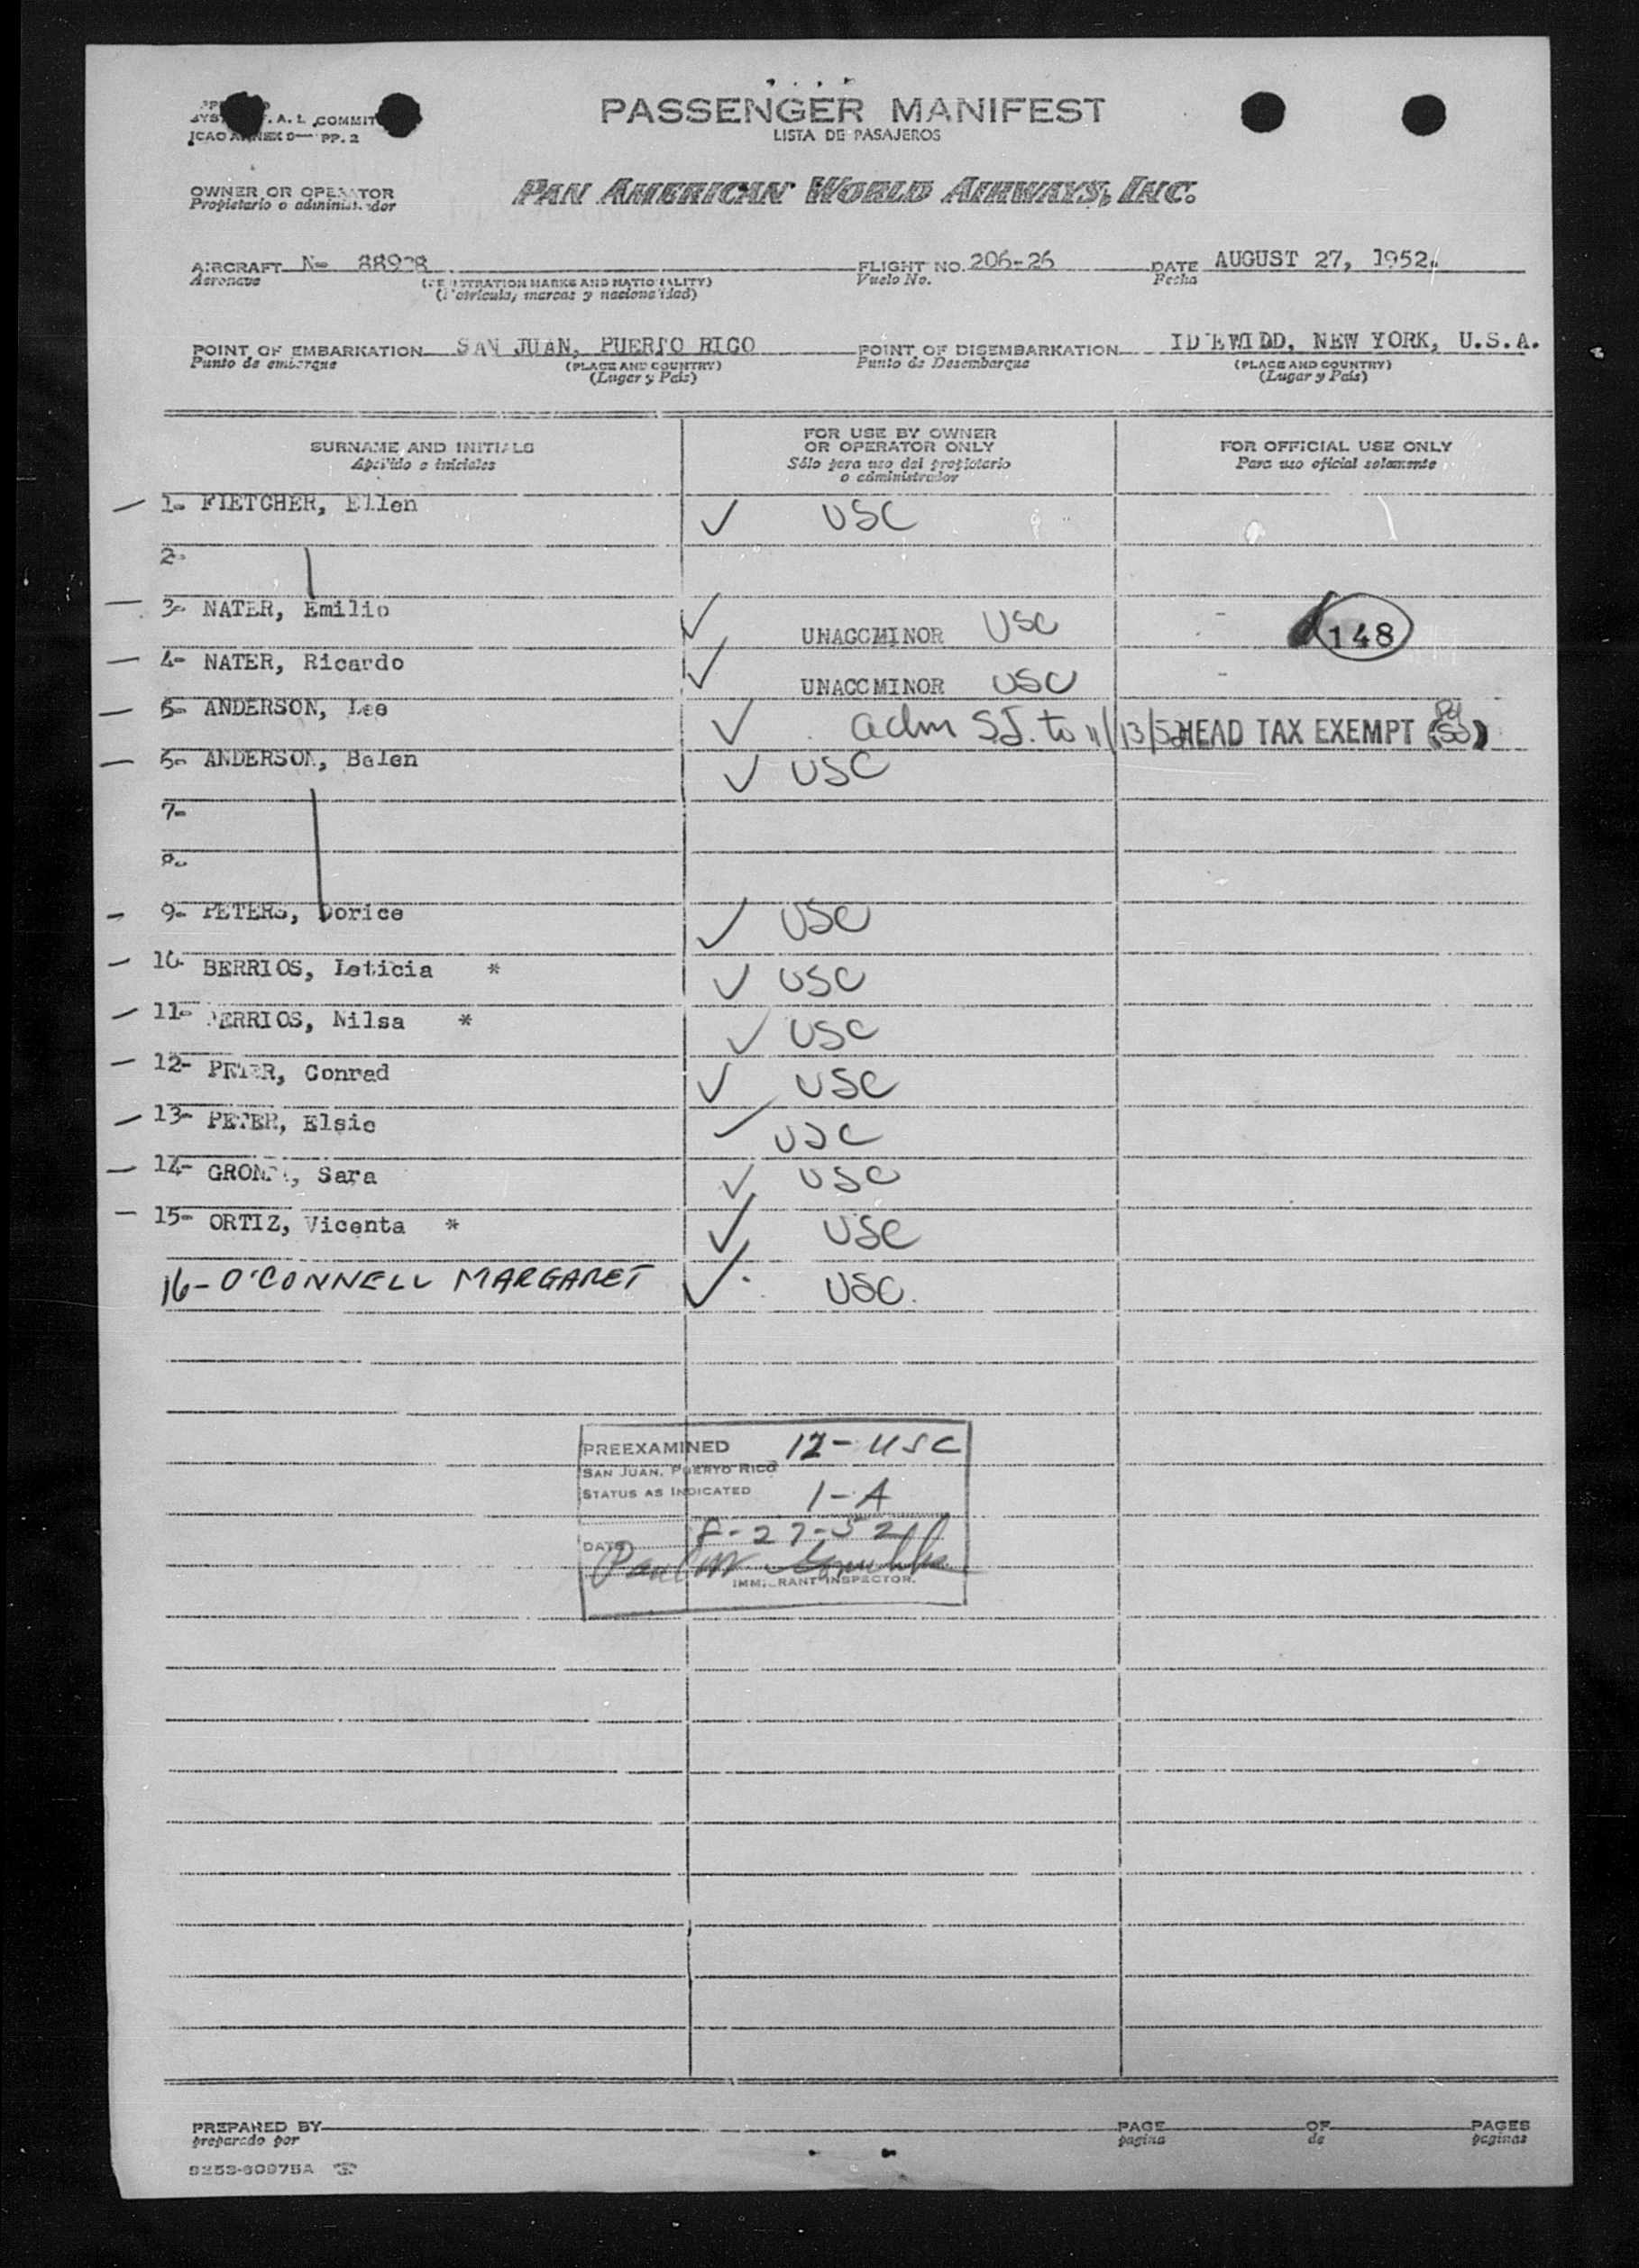 PASSENGER MANIFEST
LISTA DE PASAJEROS
F.A.L. COMMIT
ICAO ANNEX 9— PP. 2
OWNER OR OPERATOR
Propietario o administrador
PAN AMERICAN WORLD AIRWAYS, INC.
AIRCRAFT N- 88928 FLIGHT NO. 206-26 DATE AUGUST 27, 1952.
Aeronave (REGISTRATION MARKS AND NATIONALITY) Vuelo No. Fecha
(Matricula, marcas y nacionalidad)
POINT OF EMBARKATION SAN JUAN, PUERTO RICO POINT OF DISEMBARKATION IDLEWIDD, NEW YORK, U.S.A.
Punto de embarque (PLACE AND COUNTRY) Punto de Desembarque (PLACE AND COUNTRY)
(Lugar y País) (Lugar y País)
SURNAME AND INITIALS FOR USE BY OWNER OR OPERATOR ONLY FOR OFFICIAL USE ONLY
Apellido e iniciales Sólo para uso del propietario o administrador Para uso oficial solamente
1- FLETCHER, Ellen ✓ USC
2-
3- NATER, Emilio ✓ UNACCMINOR USC 148
4- NATER, Ricardo ✓ UNACCMINOR USC
5- ANDERSON, Lee ✓ adm SJ. to 11/13/52 HEAD TAX EXEMPT (SJ)
6- ANDERSON, Belen ✓ USC
7-
8-
9- PETERS, Dorice ✓ USC
10- BERRIOS, Leticia * ✓ USC
11- BERRIOS, Nilsa * ✓ USC
12- PETER, Conrad ✓ USC
13- PETER, Elsie ✓ USC
14- Sara ✓ USC
15- ORTIZ, Vicenta * ✓ USC
16- O'CONNELL MARGARET ✓ USC.
PREEXAMINED 12-USC
SAN JUAN, PUERTO RICO
STATUS AS INDICATED 1-A
DATE 8-27-52
IMMIGRANT INSPECTOR.
PREPARED BY PAGE OF PAGES
preparado por pagina de paginas
9253-60975A